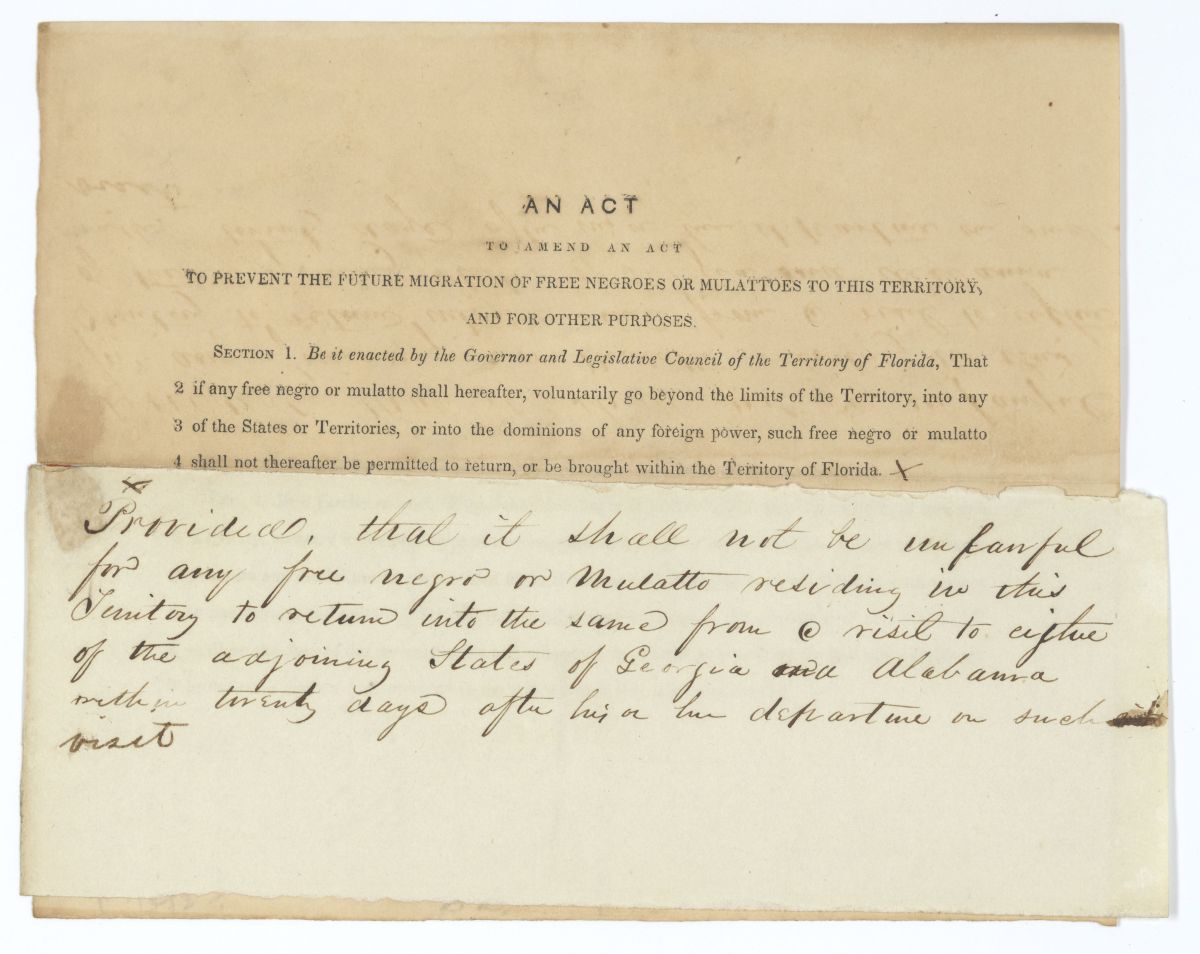 AN ACT
TO AMEND AN ACT
TO PREVENT THE FUTURE MIGRATION OF FREE NEGROES OR MULATTOES TO THIS TERRITORY,
AND FOR OTHER PURPOSES.
SECTION 1. Be it enacted by the Governor and Legislative Council of the Territory of Florida, That
2 if any free negro or mulatto shall hereafter, voluntarily go beyond the limits of the Territory, into any
3 of the States or Territories, or into the dominions of any foreign power, such free negro or mulatto
4 shall not thereafter be permitted to return, or be brought within the Territory of Florida. X
X
Provided, that it shall not be unlawful
for any free negro or Mulatto residing in this
Territory to return into the same from a visit to either
of the adjoining States of Georgia and Alabama
within twenty days after his or her departure on such
visit